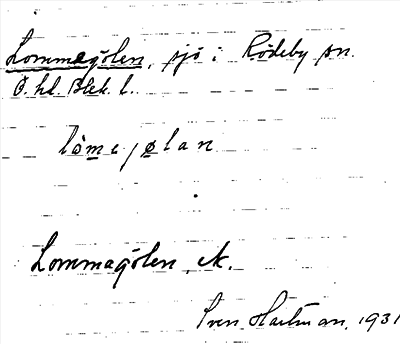 Lommagölen, sjö i Rödeby sn.
Ö. hd. Blek. l.
låmejølan
Lommagölen, ek.
Sven Hartman. 1931